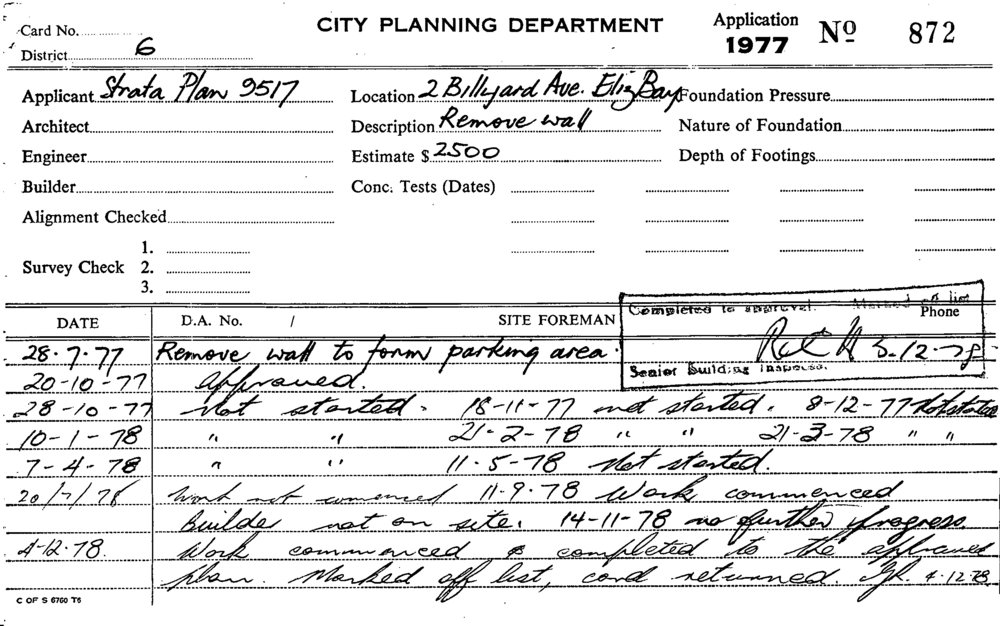 Card No.
CITY PLANNING DEPARTMENT
Application
1977 Nº 872
District 6
Applicant Strata Plan 9517 Location 2 Billyard Ave. Eliz Bay Foundation Pressure
Architect Description Remove wall Nature of Foundation
Engineer Estimate $ 2500 Depth of Footings
Builder Conc. Tests (Dates)
Alignment Checked
1.
Survey Check 2.
3.
Completed to approval. Marked off list
DATE D.A. No. / SITE FOREMAN Phone
5-12-78
Senior Building Inspector.
28.7.77 Remove wall to form parking area.
20-10-77 Approved.
28-10-77 Not started. 18-11-77 not started. 8-12-77 Not started
10-1-78 " " 21-2-78 " " 21-3-78 " "
7-4-78 " " 11-5-78 Not started.
20/7/78 Work not comenced 11-9-78 Work commenced
Builder not on site. 14-11-78 no further progress
4-12-78. Work commenced & completed to the approved
plan. Marked off list, card returned. 4.12.78
C OF S 6760 T6